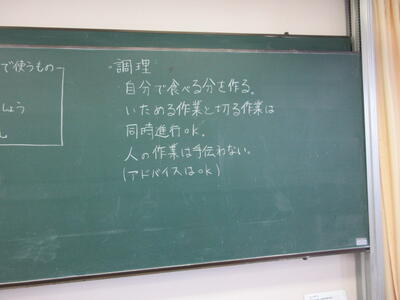 で使うもの
しょう
ん
・調理
自分で食べる分を作る。
いためる作業と切る作業は
同時進行ok.
人の作業は手伝わない。
(アドバイスはok)